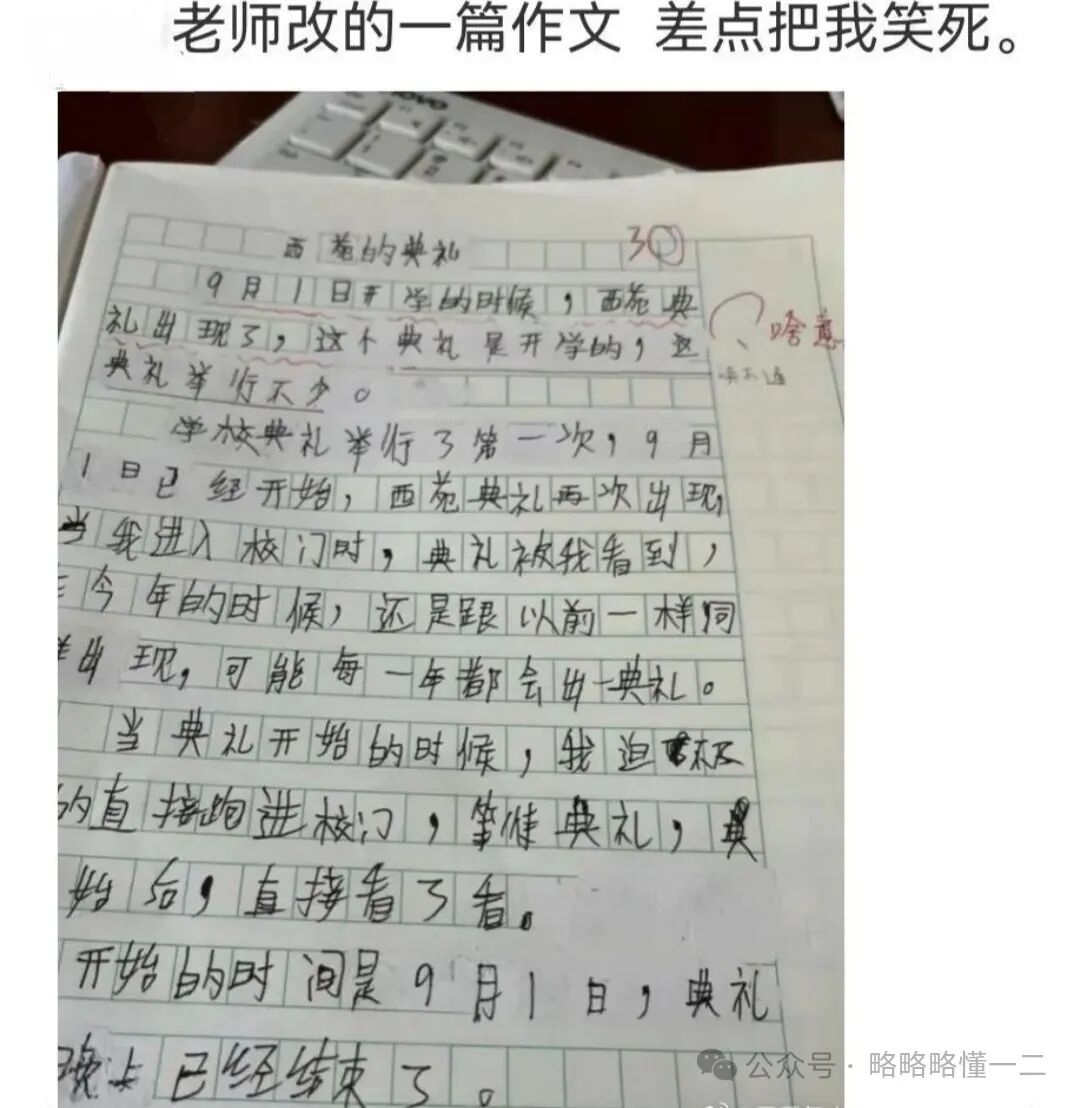 老师改的一篇作文 差点把我笑死。
ovo
西苑的典礼 30
9月1日开学的时候，西苑典
礼出现了，这个典礼是开学的，这 啥意
典礼举行不少。
学校典礼举行了第一次，9月
1日已经开始，西苑典礼再次出现，
当我进入校门时，典礼被我看到，
今年的时候，还是跟以前一样同
出现，可能每一年都会出典礼。
当典礼开始的时候，我迫不及
的直接跑进校门，等待典礼，典
始后，直接看了看。
开始的时间是9月1日，典礼
晚上已经结束了。
公众号·略略略懂一二